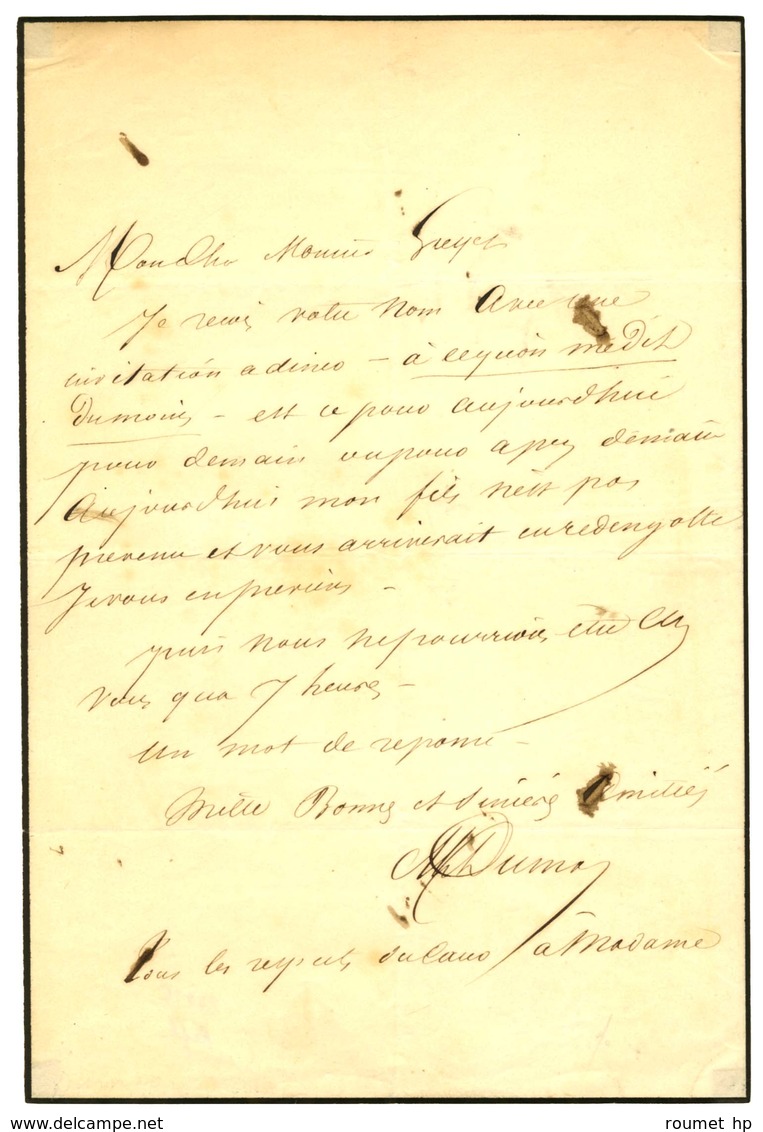 Mon cher Monsieur
Je reçois votre nom avec une
invitation a diner – à ce qu'on me dit
du moins – est ce pour aujourdhui
pour demain ou pour apres demain
Aujourdhui mon fils n'est pas
prevenu et vous arriverait en redingotte
Je vous en previens –
puis nous ne pourrions être chez
vous qua 7 heures –
un mot de reponse –
Mille Bonnes et sinceres Amitiés
Alex Dumas
Tous les respects du cœur à Madame
roumet hp